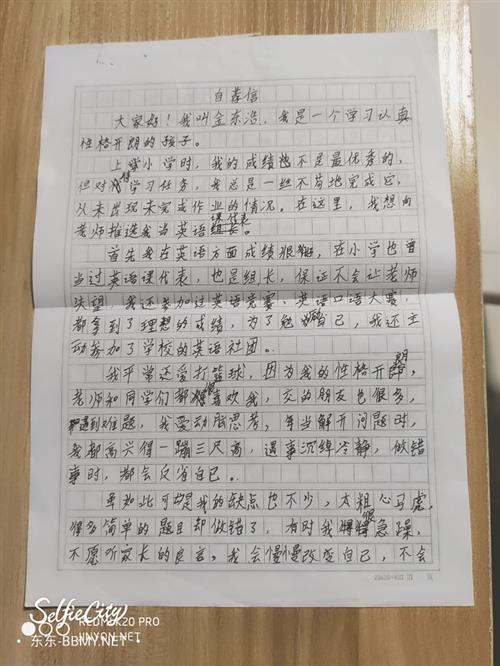 自荐信
大家好！我叫金东浩，我是一个学习认真
性格开朗的孩子。
上小学时，我的成绩不是最优秀的，
但对待学习任务，我总是一丝不苟地完成它，
从未出现未完成作业的情况。在这里，我想向
老师推选我当英语课代表。
首先我在英语方面成绩很好，在小学也曾
当过英语课代表，也是组长，保证不会让老师
失望，我还参加过英语竞赛、英语口语大赛，
都拿到了理想的成绩，为了勉励自己，我还主
动参加了学校的英语社团。
我平常还爱打篮球，因为我的性格开朗，
老师和同学们都很喜欢我，交的朋友也很多，
遇到难题，我爱动脑思考，每当解开问题时，
我都高兴得一蹦三尺高，遇事沉绰冷静，做错
事时，都会反省自己。
虽如此可是我的缺点也不少，太粗心马虎，
很多简单的题目却做错了，有时我很急躁，
不愿听家长的良言，我会慢慢改变自己，不会
SelfieCity
REDMI K20 PRO
JINYON.NET
东东-BBMY.NET